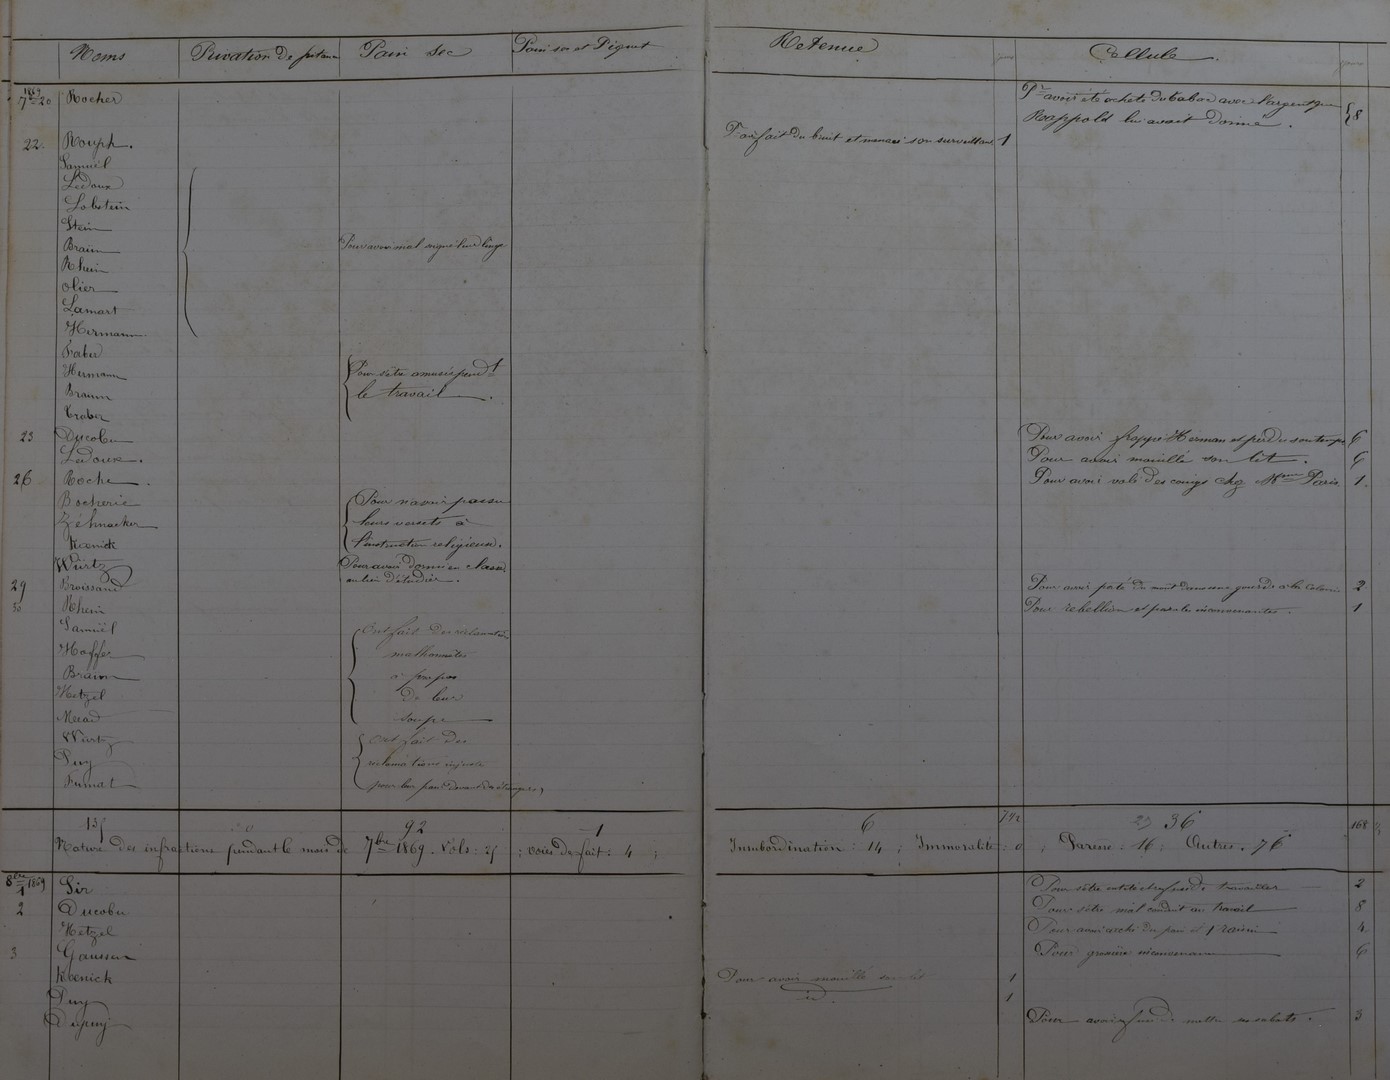 Noms Privation de pitance Pain sec Pain sec et Piquet Retenue jours Cellule jours
1869
7bre 20 Rocher Pr avoir été acheté du tabac avec l'argent que
Rappold lui avait donné. 8
22 Rouph. A fait du bruit et menacé son surveillant 1
Samuël
Ledoux
Lobstein
Stein
Braün Pour avoir mal soigné leur linge
Rhein
Olier
Lamart
Hermann
Faber
Hermann Pour s'être amusés pendt
Braun le travail.
Traber
23 Ducobu Pour avoir frappé Herman et perdu son temps 6
Ledoux. Pour avoir mouillé son lit. 6
26 Roche. Pour avoir volé des coings chez Mme Paris. 1.
Bocherie Pour n'avoir pas su
Zéhnacker leurs versets à
Koenick l'instruction religieuse.
Würtz Pour avoir dormi en classe
au lieu d'étudier.
29 Broissand Pour avoir à la colonie 2
30 Rhein Pour rébellion et paroles inconvenantes. 1
Samuël Ont fait des réclamations
Hoffer malhonnêtes
Braün à propos
Hetzel de leur
Meiad soupe
Würtz Ont fait des
Puy réclamations injustes
Fumat pour leur pain devant des étrangers
135 92 1 6 36 168
Nature des infractions pendant le mois de 7bre 1869. Vols: ; voies de fait: 4; Insubordination: 14; Immoralité: 0; Paresse: 16; Autres. 76
8bre 1869
1 Sir Pour s'être entêté et refusé de travailler 2
2 Ducobu Pour s'être mal conduit au travail 8
Hetzel Pour avoir du pain et 1 raisin 4
3 Gausser Pour grossière inconvenance 6
Koenick Pour avoir mouillé son lit 1
Puy id. 1
Dupuy Pour avoir refusé de mettre ses sabots. 3